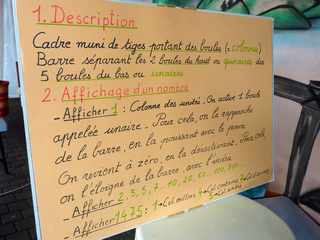 1. Description
Cadre muni de tiges portant des boules (= colonnes)
Barre séparant les 2 boules du haut ou quinaires des
5 boules du bas ou unaires
2. Affichage d'un nombre
- Afficher 1 : Colonne des unités. On active 1 boule
appelée unaire. Pour cela, on la rapproche
de la barre, en la poussant avec le pouce.
On revient à zéro, en la désactivant. Pour cela,
on l'éloigne de la barre, avec l'index.
- Afficher 2, 3, 5, 7 - 10, 20,
- Afficher 1475 : 1 col milliers